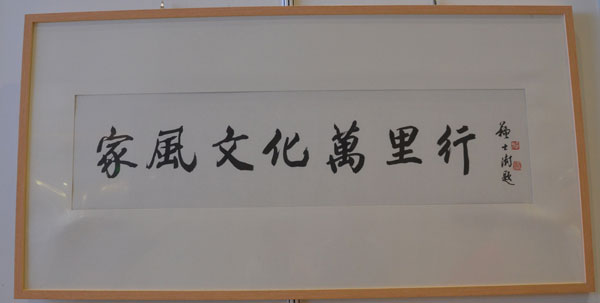 家風文化萬里行
蘇士澍題